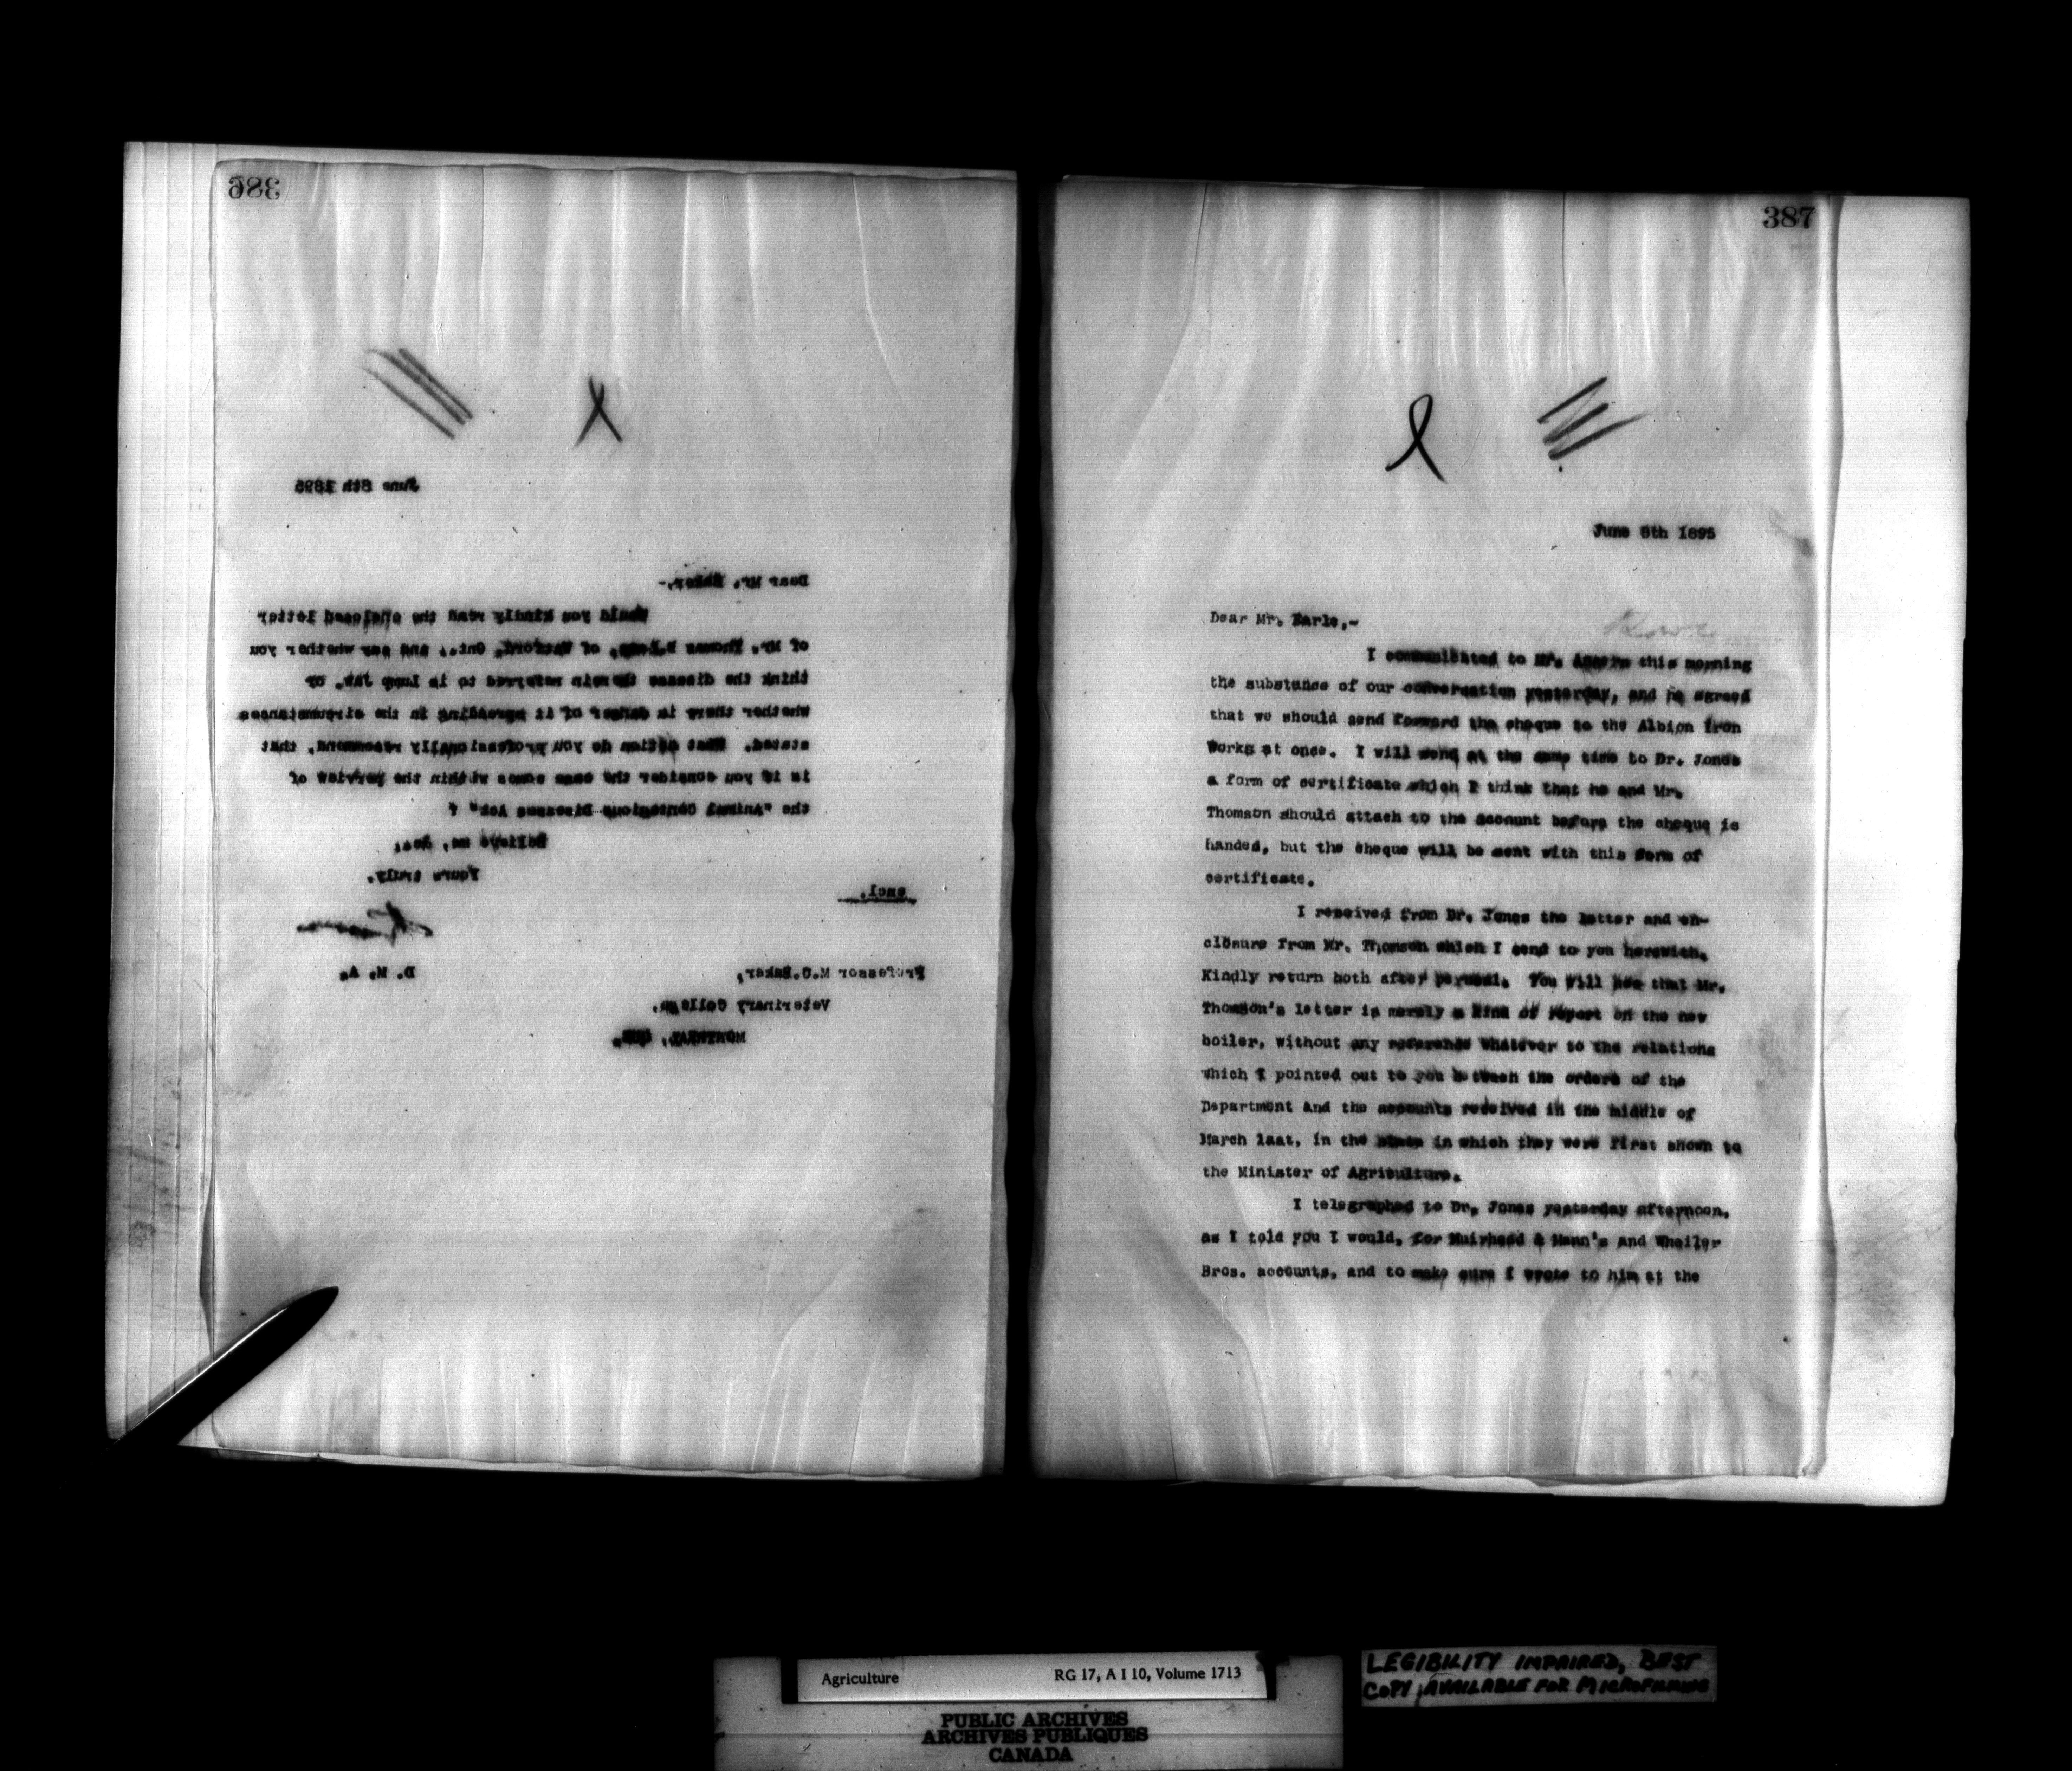 386
June 8th 1895
Dear Mr. Baker,-
Would you kindly read the enclosed letter
of Mr. Thomas of Watford, Ont., and say whether you
think the disease therein referred to is Lump Jaw, or
whether there is danger of it spreading in the circumstances
stated. What action do you professionally recommend, that
is if you consider the case comes within the purview of
the "Animal Contagious Diseases Act" ?
Believe me, &c.,
Yours truly,
encl.
D. M. A.
Professor M.C.Baker,
Veterinary College,
MONTREAL, QUE.
387
June 8th 1895
Dear Mr. Earle,-
I communicated to Mr. this morning
the substance of our conversation yesterday, and he agreed
that we should send forward the cheque to the Albion Iron
Works at once. I will send at the same time to Dr. Jones
a form of certificate which I think that he and Mr.
Thomson should attach to the account before the cheque is
handed, but the cheque will be sent with this form of
certificate.
I received from Dr. Jones the letter and en-
closure from Mr. Thomson which I send to you herewith.
Kindly return both after perusal. You will see that Mr.
Thomson's letter is merely a kind of report on the new
boiler, without any reference whatever to the relations
which I pointed out to you between the orders of the
Department and the accounts received in the middle of
March last, in the in which they were first shown to
the Minister of Agriculture.
I telegraphed to Dr. Jones yesterday afternoon,
as I told you I would, for Muirhead & Mann's and Wheiler
Bros. accounts, and to make sure I wrote to him at the
Agriculture RG 17, A I 10, Volume 1713
PUBLIC ARCHIVES
ARCHIVES PUBLIQUES
CANADA
LEGIBILITY IMPAIRED, BEST
COPY AVAILABLE FOR MICROFILMING